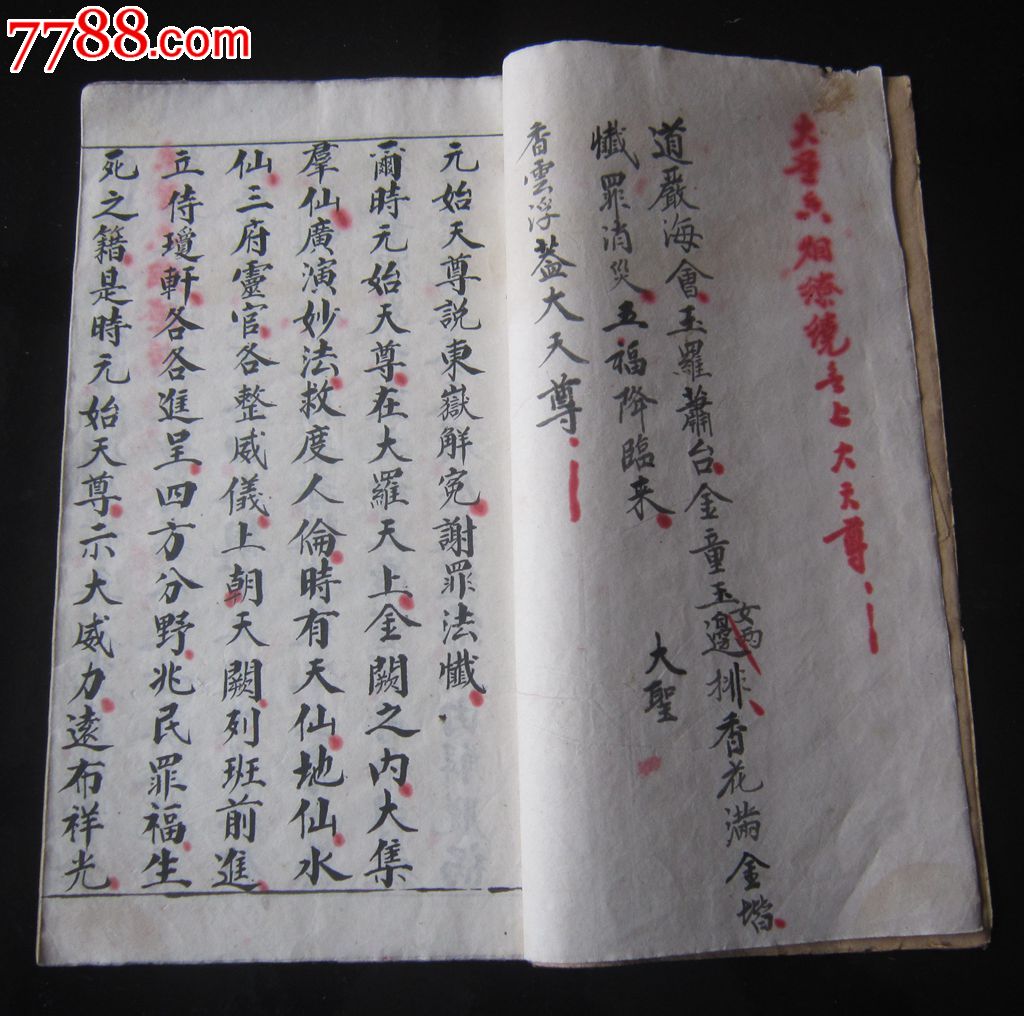 7788.com
大聖香烟繚繞无上大天尊
道嚴海會玉羅蕭台金童玉女两邊排香花滿金堦
懺罪消災五福降臨来 大聖
香雲浮葢大天尊
元始天尊説東嶽觧寃謝罪法懺
爾時元始天尊在大羅天上金闕之内大集
羣仙廣演妙法救度人倫時有天仙地仙水
仙三府靈官各整威儀上朝天闕列班前進
立侍瓊軒各各進呈四方分野兆民罪福生
死之籍是時元始天尊示大威力遠布祥光